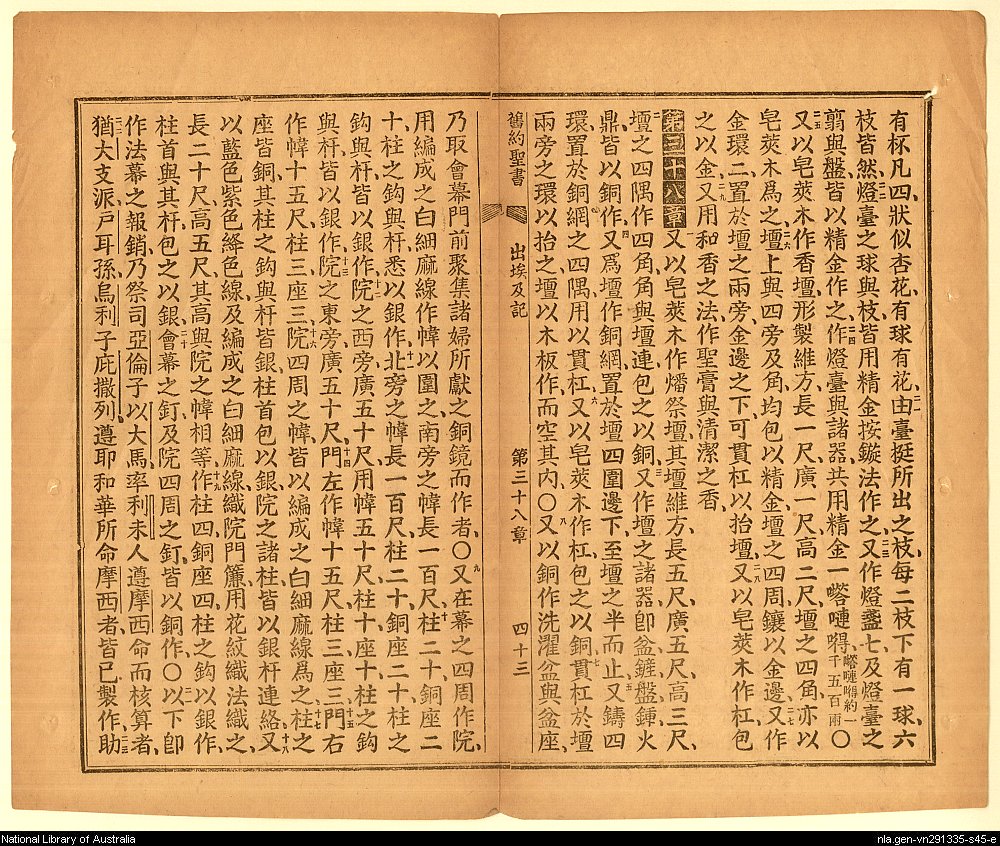 有杯凡四狀似杏花有球有花二一由臺挺所出之枝每二枝下有一球六
枝皆然二二燈臺之球與枝皆用精金按鏇法作之二三又作燈盞七及燈臺之
翦與盤皆以精金作之二四作燈臺與諸器共用精金一㗳嗹㝵㗳嗹㝵約一千五百兩〇
二五又以皂莢木作香壇形製維方長一尺廣一尺高二尺壇之四角亦以
皂莢木爲之二六壇上與四旁及角均包以精金壇之四周鑲以金邊二七又作
金環二置於壇之兩旁金邊之下可貫杠以抬壇二八又以皂莢木作杠包
之以金二九又用和香之法作聖膏與清潔之香
第三十八章一又以皂莢木作燔祭壇其壇維方長五尺廣五尺高三尺
二壇之四隅作四角角與壇連包之以銅三又作壇之諸器卽盆鏟盤鍾火
鼎皆以銅作四又爲壇作銅網置於壇四圍邊下至壇之半而止五又鑄四
環置於銅網之四隅用以貫杠六又以皂莢木作杠包之以銅七貫杠於壇
兩旁之環以抬之壇以木板作而空其內〇八又以銅作洗濯盆與盆座
舊約聖書 出埃及記 第三十八章 四十三
乃取會幕門前聚集諸婦所獻之銅鏡而作者〇九又在幕之四周作院
用編成之白細麻線作幃以圍之南旁之幃長一百尺十柱二十銅座二
十柱之鈎與杆悉以銀作十一北旁之幃長一百尺柱二十銅座二十柱之
鈎與杆皆以銀作十二院之西旁廣五十尺用幃五十尺柱十座十柱之鈎
與杆皆以銀作十三院之東旁廣五十尺十四門左作幃十五尺柱三座三十五門右
作幃十五尺柱三座三十六院四周之幃皆以編成之白細麻線爲之十七柱之
座皆銅其柱之鈎與杆皆銀柱首包以銀院之諸柱皆以銀杆連絡十八又
以藍色紫色絳色線及編成之白細麻線織院門簾用花紋織法織之
長二十尺高五尺其高與院之幃相等十九作柱四銅座四柱之鈎以銀作
柱首與其杆包之以銀二十會幕之釘及院四周之釘皆以銅作〇二一以下卽
作法幕之報銷乃祭司亞倫子以大馬率利未人遵摩西命而核算者
二二猶大支派戶耳孫烏利子庇撒列遵耶和華所命摩西者皆已製作二三助
National Library of Australia
nla.gen-vn291335-s45-e